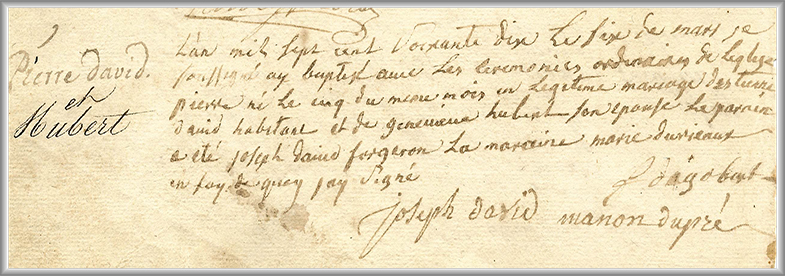 Pierre david.
et
Hubert
L'an mil sept cent Soixante dix le six de mars je
soussigné ay baptisé avec les ceremonies ordinaires de leglise
pierre né le cinq du meme mois en legitime mariage destienne
david habitant et de genevieve hubert son epouse le parein
a été joseph david forgeron la mareine marie
en foy de quoy jay Signé
f dagobert
joseph david manon dupré